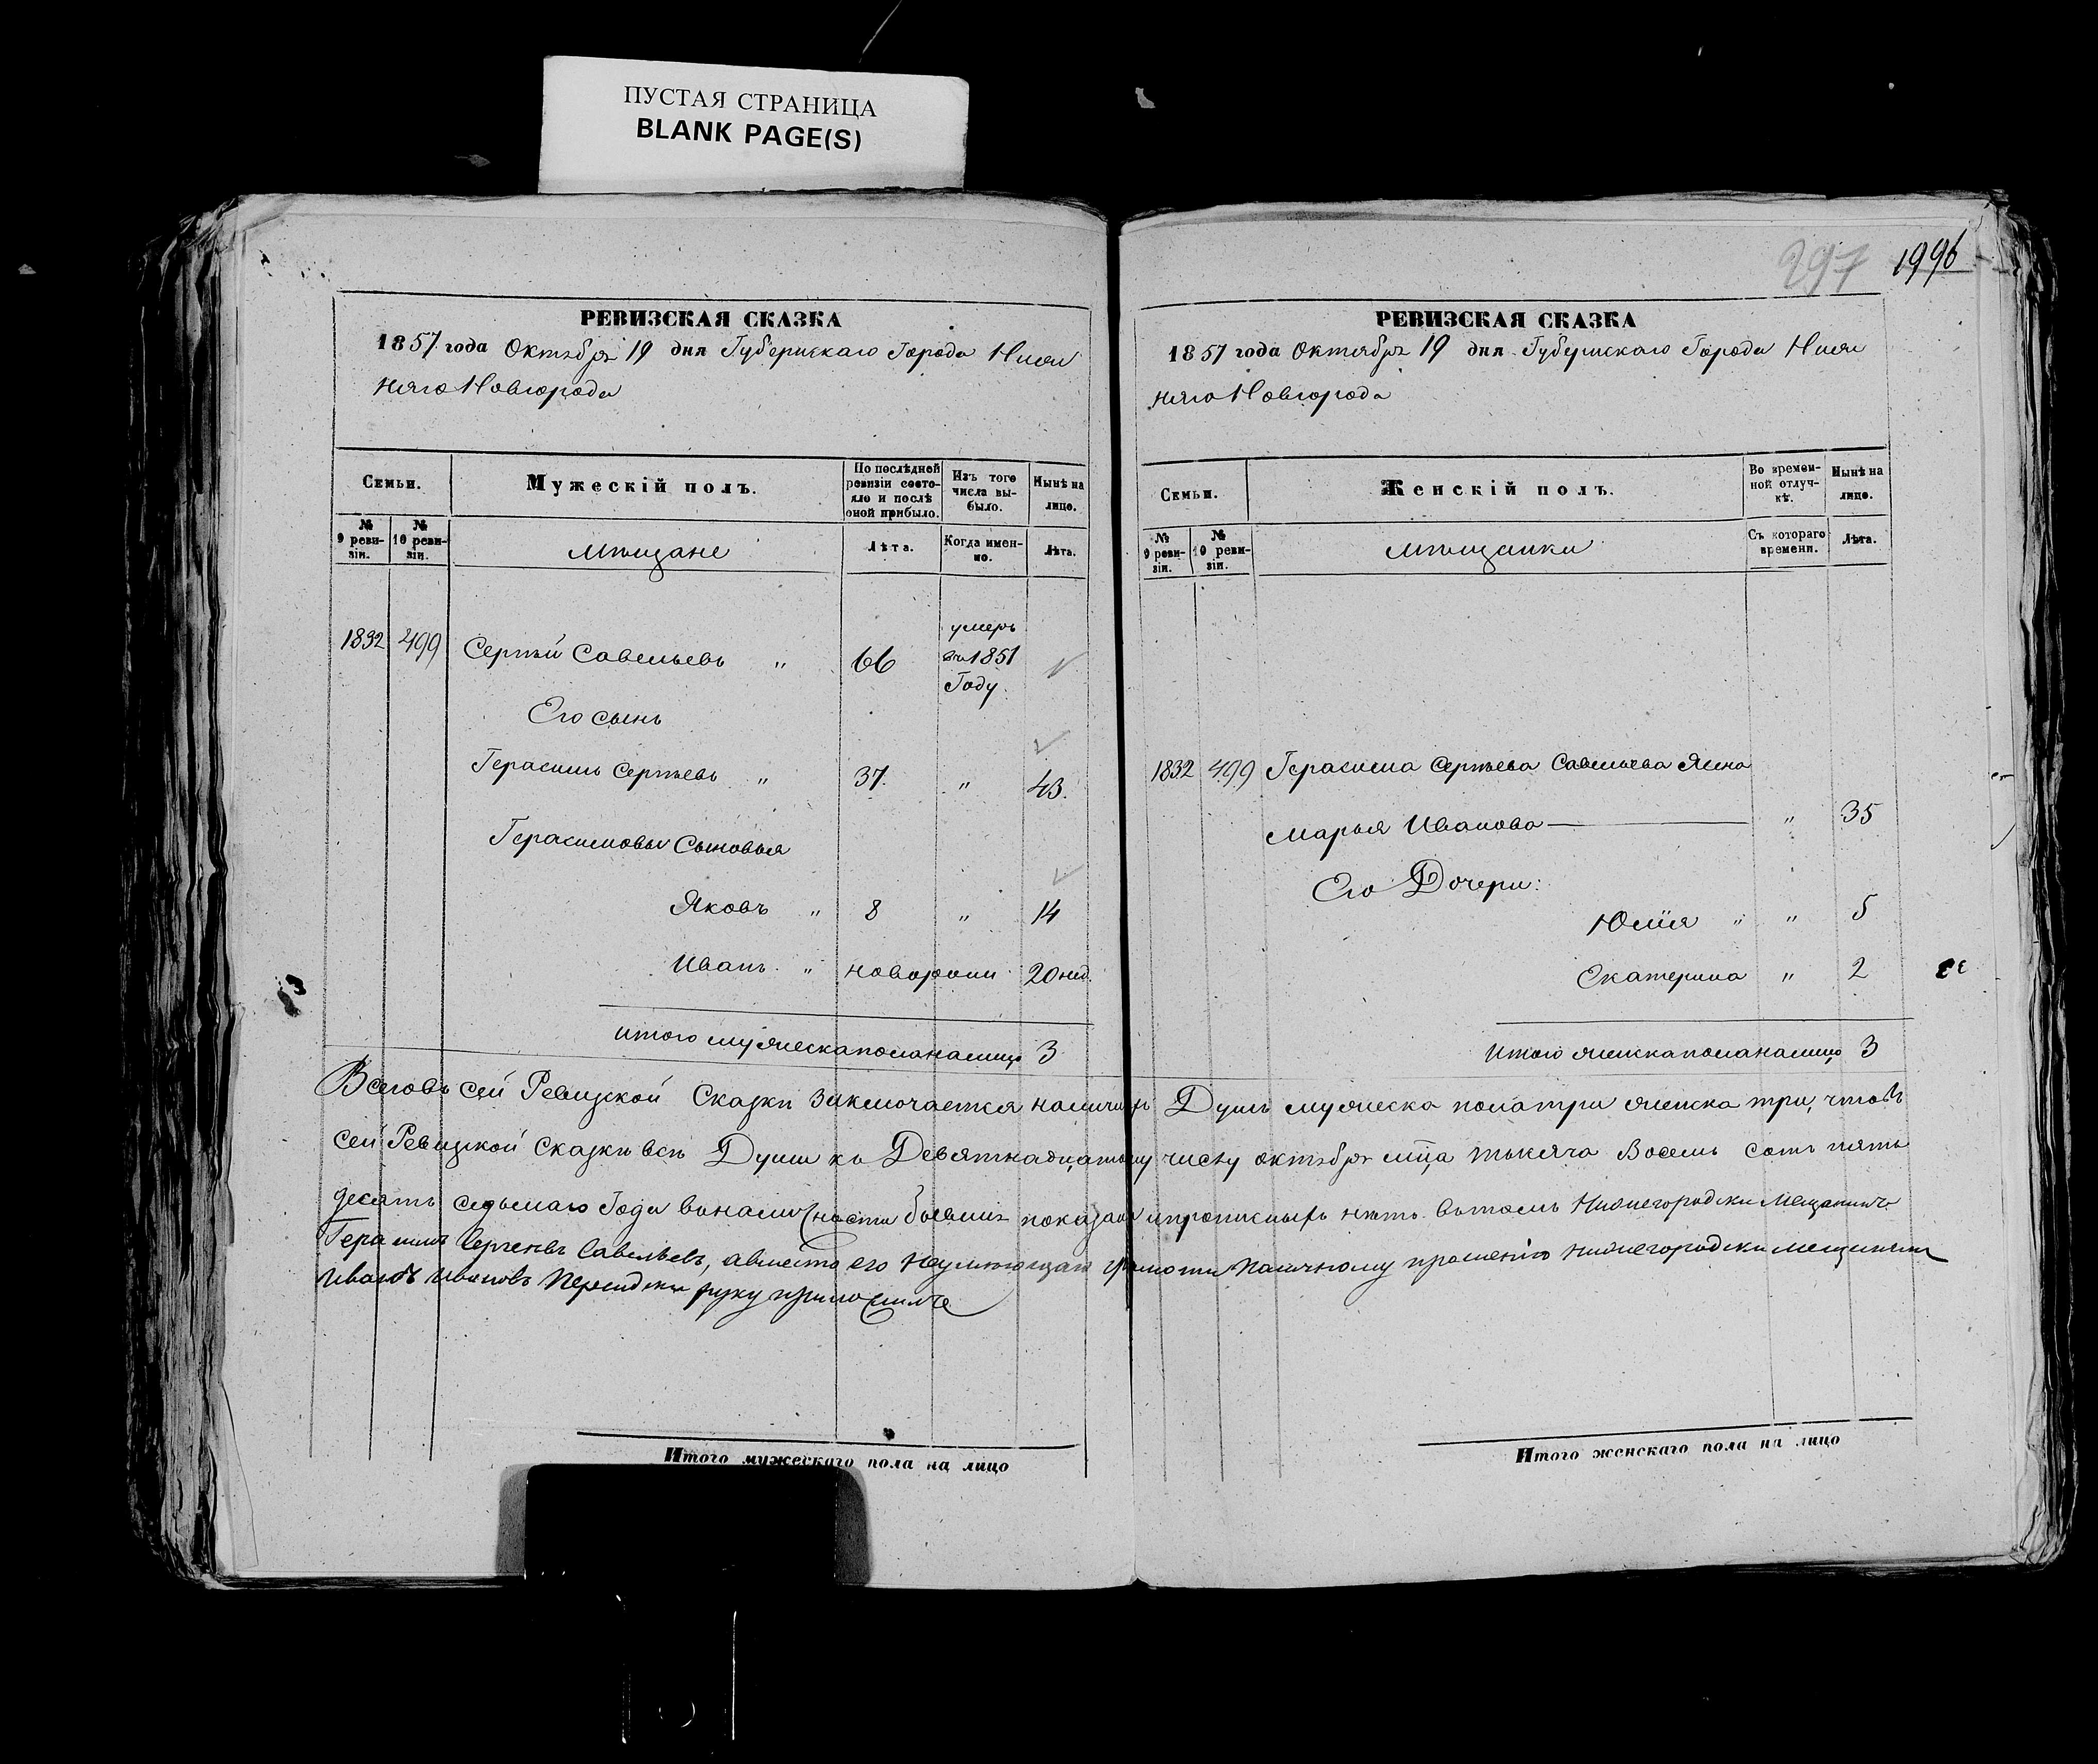 ПУСТАЯ СТРАНИЦА
BLANK PAGE(S)
297 1996
РЕВИЗСКАЯ СКАЗКА
1857 года Октября 19 дня Губернскаго Города Ниж
няго Новгорода
Семьи.
Мужескій полъ.
По послѣдней ревизіи состо-
яло и послѣ оной прибыло.
Изъ того числа вы-
было.
Нынѣ на лицо.
№ 9 реви-
зіи.
№ 10 реви-
зіи.
Мѣщане
Лѣта.
Когда имен-
но.
Лѣта.
1832 499 Сергѣй Савельевъ " 66 умеръ въ 1851 Году
Его сынъ
Герасимъ Сергѣевъ " 37. " 43.
Герасимовы Сыновья
Яковъ " 8 " 14
Иванъ. " новорожд 20 нед.
Итого мужеска пола на лицо 3
РЕВИЗСКАЯ СКАЗКА
1857 года Октября 19 дня Губернскаго Города Ниж
няго Новгорода
Семьи.
Женскій полъ.
Во времен-
ной отлуч-
кѣ.
Нынѣ на лицо.
№ 9 реви-
зіи.
№ 10 реви-
зіи.
Мѣщанки
Съ котораго времени.
Лѣта.
1832 499 Герасима Сергѣева Савельева Жена
Марья Иванова " 35
Его Дочери:
Юлія " " 5
Екатерина " 2
Итого женска пола на лицо 3
Всего въ сей Ревизской Сказки заключается наличныхъ Душъ мужеска пола три женска три, что въ
сей Ревизской Сказкѣ всѣ Души къ Девятнадцатому числу октября мца тысяча Восемь сотъ пять
десятъ седьмаго Года въ наличности бывшия показаны и прописныхъ нѣтъ въ томъ Нижегородски Мещанинъ
Герасимъ Сергеевъ Савельевъ, а вместо его неумеющаго грамоты по личному прошенію нижегородски мещанинъ
Иванъ Ивановъ руку приложилъ
Итого мужескаго пола на лицо
Итого женскаго пола на лицо